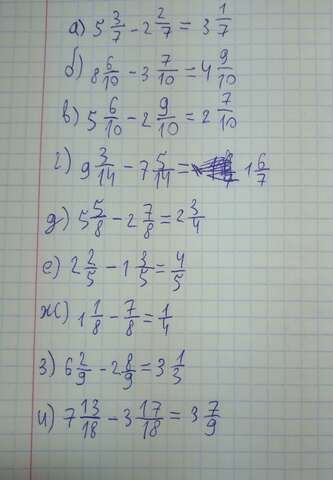 а) 5 3/7 - 2 2/7 = 3 1/7
б) 8 6/10 - 3 7/10 = 4 9/10
в) 5 6/10 - 2 9/10 = 2 7/10
г) 9 3/14 - 7 5/14 = 1 6/7
д) 5 5/8 - 2 7/8 = 2 3/4
е) 2 2/5 - 1 3/5 = 4/5
ж) 1 1/8 - 7/8 = 1/4
з) 6 2/9 - 2 8/9 = 3 1/3
и) 7 13/18 - 3 17/18 = 3 7/9